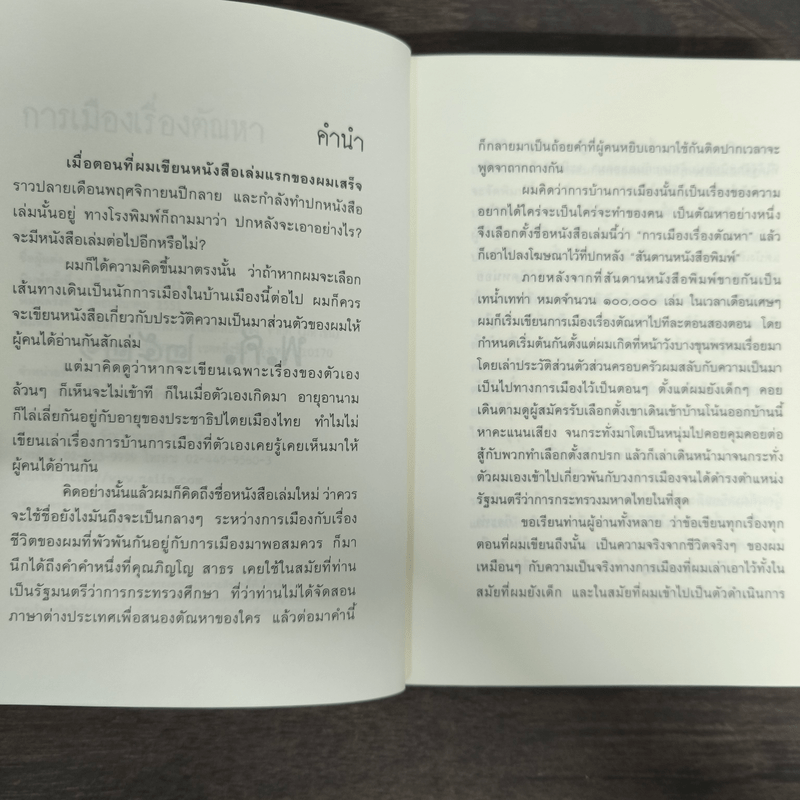 การเมืองเรื่องตัณหา
คำนำ
เมื่อตอนที่ผมเขียนหนังสือเล่มแรกของผมเสร็จ
ราวปลายเดือนพฤศจิกายนปีกลาย และกำลังทำปกหนังสือ
เล่มนั้นอยู่ ทางโรงพิมพ์ก็ถามมาว่า ปกหลังจะเอาอย่างไร?
จะมีหนังสือเล่มต่อไปอีกหรือไม่?
ผมก็ได้ความคิดขึ้นมาตรงนั้น ว่าถ้าหากผมจะเลือก
เส้นทางเดินเป็นนักการเมืองในบ้านเมืองนี้ต่อไป ผมก็ควร
จะเขียนหนังสือเกี่ยวกับประวัติความเป็นมาส่วนตัวของผมให้
ผู้คนได้อ่านกันสักเล่ม
แต่มาคิดดูว่าหากจะเขียนเฉพาะเรื่องของตัวเอง
ล้วนๆ ก็เห็นจะไม่เข้าที ก็ในเมื่อตัวเองเกิดมา อายุอานาม
ก็ไล่เลี่ยกันอยู่กับอายุของประชาธิปไตยเมืองไทย ทำไมไม่
เขียนเล่าเรื่องการบ้านการเมืองที่ตัวเองเคยรู้เคยเห็นมาให้
ผู้คนได้อ่านกัน
คิดอย่างนั้นแล้วผมก็คิดถึงชื่อหนังสือเล่มใหม่ ว่าควร
จะใช้ชื่อยังไงมันถึงจะเป็นกลางๆ ระหว่างการเมืองกับเรื่อง
ชีวิตของผมที่พัวพันกันอยู่กับการเมืองมาพอสมควร ก็มา
นึกได้ถึงคำคำหนึ่งที่คุณภิญโญ สาธร เคยใช้ในสมัยที่ท่าน
เป็นรัฐมนตรีว่าการกระทรวงศึกษา ที่ว่าท่านไม่ได้จัดสอน
ภาษาต่างประเทศเพื่อสนองตัณหาของใคร แล้วต่อมาคำนี้
ก็กลายมาเป็นถ้อยคำที่ผู้คนหยิบเอามาใช้กันติดปากเวลาจะ
พูดจาถากถางกัน
ผมคิดว่าการบ้านการเมืองนั้นก็เป็นเรื่องของความ
อยากได้ใคร่จะเป็นใคร่จะทำของคน เป็นตัณหาอย่างหนึ่ง
จึงเลือกตั้งชื่อหนังสือเล่มนี้ว่า “การเมืองเรื่องตัณหา” แล้ว
ก็เอาไปลงโฆษณาไว้ที่ปกหลัง “สันดานหนังสือพิมพ์”
ภายหลังจากที่สันดานหนังสือพิมพ์ขายกันเป็น
เทน้ำเทท่า หมดจำนวน ๑๐๐,๐๐๐ เล่ม ในเวลาเดือนเศษๆ
ผมก็เริ่มเขียนการเมืองเรื่องตัณหาไปทีละตอนสองตอน โดย
กำหนดเริ่มต้นกันตั้งแต่ผมเกิดที่หน้าวังบางขุนพรหมเรื่อยมา
โดยเล่าประวัติส่วนตัวส่วนครอบครัวผมสลับกับความเป็นมา
เป็นไปทางการเมืองไว้เป็นตอนๆ ตั้งแต่ผมยังเด็กๆ คอย
เดินตามดูผู้สมัครรับเลือกตั้งเขาเดินเข้าบ้านโน้นออกบ้านนี้
หาคะแนนเสียง จนกระทั่งมาโตเป็นหนุ่มไปคอยคุมคอยต่อ
สู้กับพวกทำเลือกตั้งสกปรก แล้วก็เล่าเดินหน้ามาจนกระทั่ง
ตัวผมเองเข้าไปเกี่ยวพันกับวงการเมืองจนได้ดำรงตำแหน่ง
รัฐมนตรีว่าการกระทรวงมหาดไทยในที่สุด
ขอเรียนท่านผู้อ่านทั้งหลาย ว่าข้อเขียนทุกเรื่องทุก
ตอนที่ผมเขียนถึงนั้น เป็นความจริงจากชีวิตจริงๆ ของผม
เหมือนๆ กับความเป็นจริงทางการเมืองที่ผมเล่าเอาไว้ทั้งใน
สมัยที่ผมยังเด็ก และในสมัยที่ผมเข้าไปเป็นตัวดำเนินการ